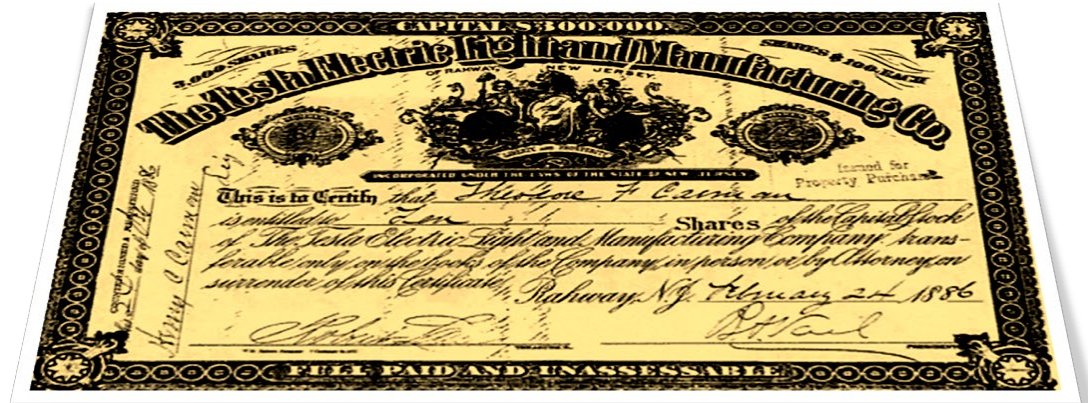 CAPITAL $300.000
3.000 SHARES
SHARES $100 EACH
The Tesla Electric Light and Manufacturing Co.
OF RAHWAY NEW JERSEY.
LIBERTY AND PROSPERITY
INCORPORATED UNDER THE LAWS OF THE STATE OF NEW JERSEY
Issued for
Property Purchased
This is to Certify that Theodore F
is entitled to Ten Shares of the Capital Stock
of The Tesla Electric Light and Manufacturing Company, trans-
ferable only on the books of the Company, in person or by Attorney, on
surrender of this Certificate,
Rahway, N.J. February 24 1886
TREASURER.
PRESIDENT
FULL PAID AND UNASSESSABLE